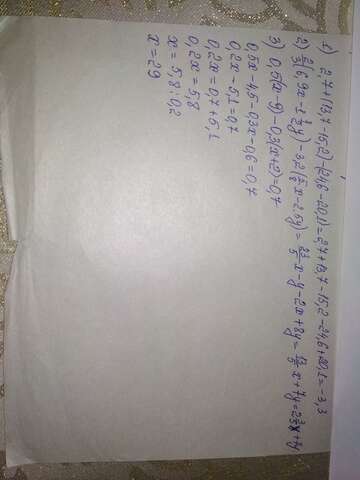 1) 2,7+(13,7-15,2)-(24,6-20,1)=2,7+13,7-15,2-24,6+20,1=-3,3
2) 2/3(6,9x-1 1/2y)-3,2(5/8x-2,5y)=23/5x-y-2x+8y=13/5x+7y=2 3/5x+7y
3) 0,5(x-9)-0,3(x+2)=0,7
0,5x-4,5-0,3x-0,6=0,7
0,2x-5,1=0,7
0,2x=0,7+5,1
0,2x=5,8
x=5,8:0,2
x=29